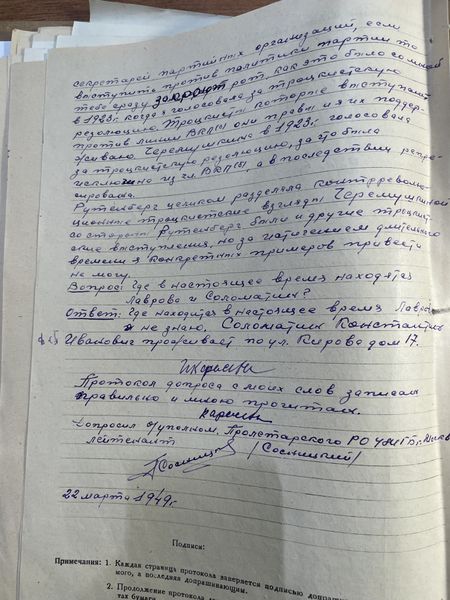 секретарей партийных организаций, если
выступить против политики партии то
тебе сразу закроют рот, как это было со мной
в 1923г. когда я голосовала за троцкистскую
резолюцию. Троцкисты которые выступают
против линии ВКП(б) они правы и я их поддер-
живаю. Черемушкина в 1923г. голосовала
за троцкистскую резолюцию, за что была
исключена из чл. ВКП(б), а в последствии репре-
сирована.
Рутенберг целиком разделяла контрреволю-
ционные троцкистские взгляды Черемушкиной
со стороны Рутенберг были и другие троцкист-
ские выступления, но за истечением длительного
времени я конкретных примеров привести
не могу.
Вопрос: Где в настоящее время находятся
Лаврова и Соломатин?
Ответ: Где находится в настоящее время Лаврова
я не знаю, Соломатин Константин
Иванович проживает по ул. Кирова дом 17.
Протокол допроса с моих слов записан
правильно и мною прочитан.
Допросил о/уполном. Пролетарского РО УМГБ г.
лейтенант
/Сосницкий/
22 марта 1949г.
Подписи:
Примечания: 1. Каждая страница протокола заверяется подписью допраши
мого, а последняя допрашивающим.
2. Продолжение протокола
тах бумаги